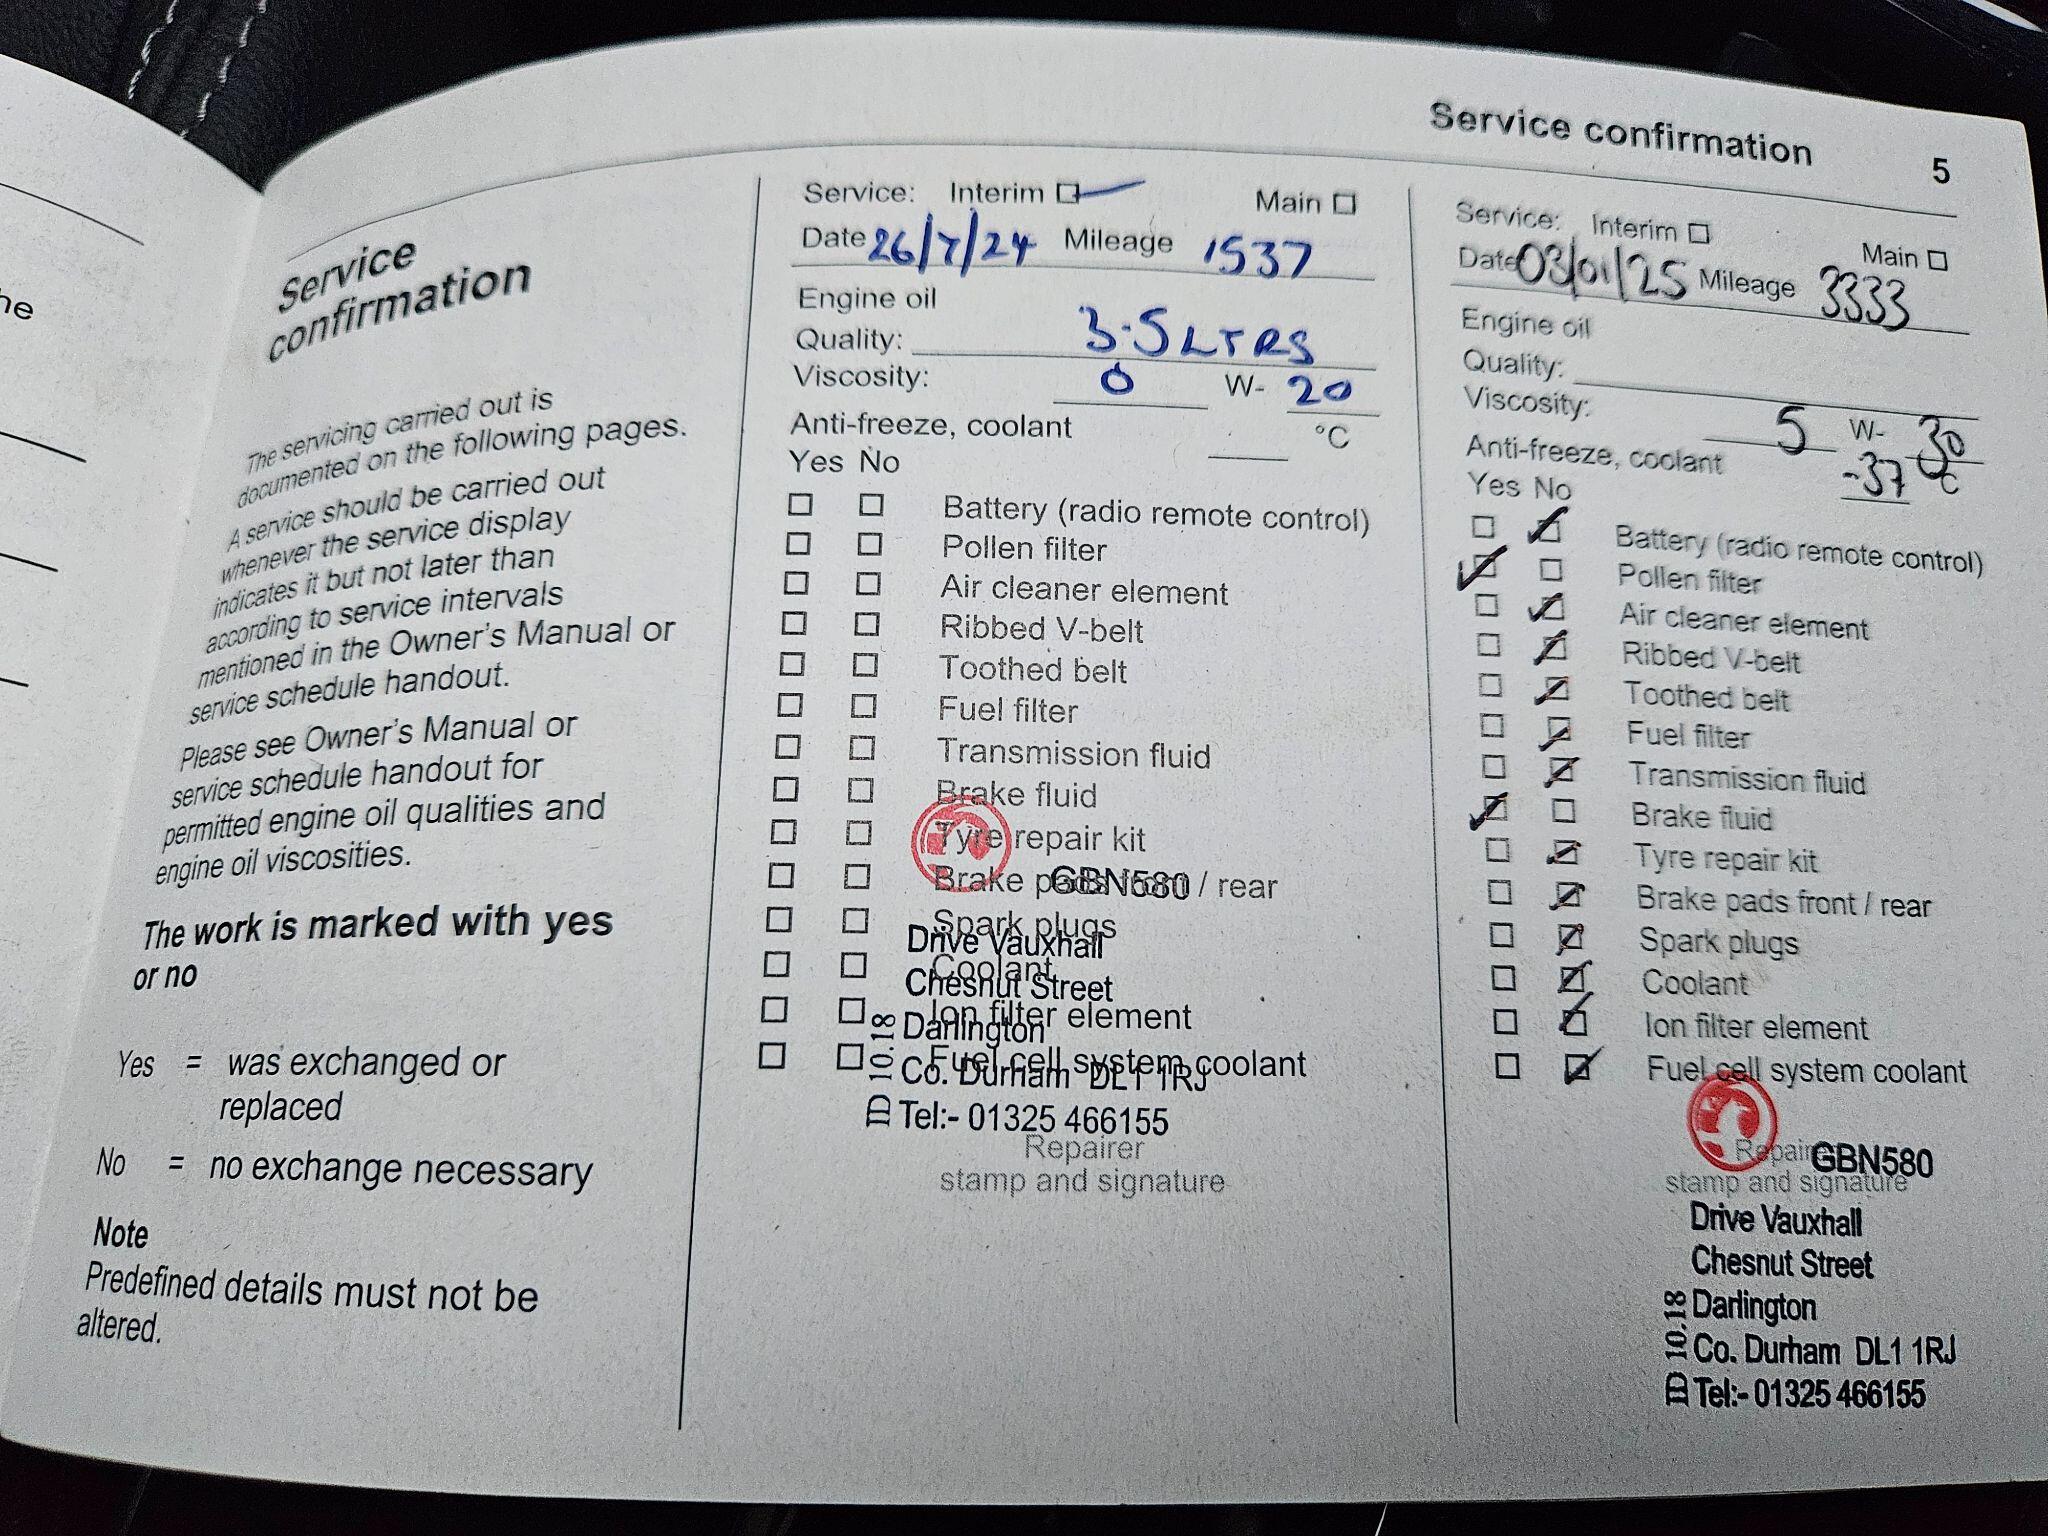 he
Service confirmation 5
Service
confirmation
The servicing carried out is
documented on the following pages.
A service should be carried out
whenever the service display
indicates it but not later than
according to service intervals
mentioned in the Owner's Manual or
service schedule handout.
Please see Owner's Manual or
service schedule handout for
permitted engine oil qualities and
engine oil viscosities.
The work is marked with yes
or no
Yes = was exchanged or
replaced
No = no exchange necessary
Note
Predefined details must not be
altered.
Service: Interim Main
Date 26/7/24 Mileage 1537
Engine oil
Quality: 3.5 LTRS
Viscosity: 0 W- 20
Anti-freeze, coolant °C
Yes No
Battery (radio remote control)
Pollen filter
Air cleaner element
Ribbed V-belt
Toothed belt
Fuel filter
Transmission fluid
Brake fluid
Tyre repair kit
Brake pads front / rear
GBN580
Spark plugs
Drive Vauxhall
Coolant
Chesnut Street
Ion filter element
Darlington
Fuel cell system coolant
Co. Durham DL1 1RJ
Tel:- 01325 466155
ID 10.18
Repairer
stamp and signature
Service: Interim Main
Date 03/01/25 Mileage 3333
Engine oil
Quality:
Viscosity: 5 W- 30
Anti-freeze, coolant -37 °C
Yes No
Battery (radio remote control)
Pollen filter
Air cleaner element
Ribbed V-belt
Toothed belt
Fuel filter
Transmission fluid
Brake fluid
Tyre repair kit
Brake pads front / rear
Spark plugs
Coolant
Ion filter element
Fuel cell system coolant
Repairer
GBN580
stamp and signature
Drive Vauxhall
Chesnut Street
Darlington
Co. Durham DL1 1RJ
Tel:- 01325 466155
ID 10.18